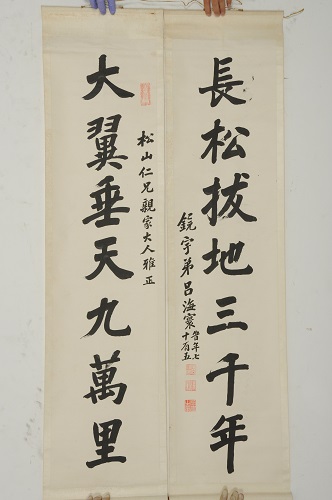 長松拔地三千年
鏡宇弟呂海寰旹年七
十有五
松山仁兄親家大人雅正
大翼垂天九萬里